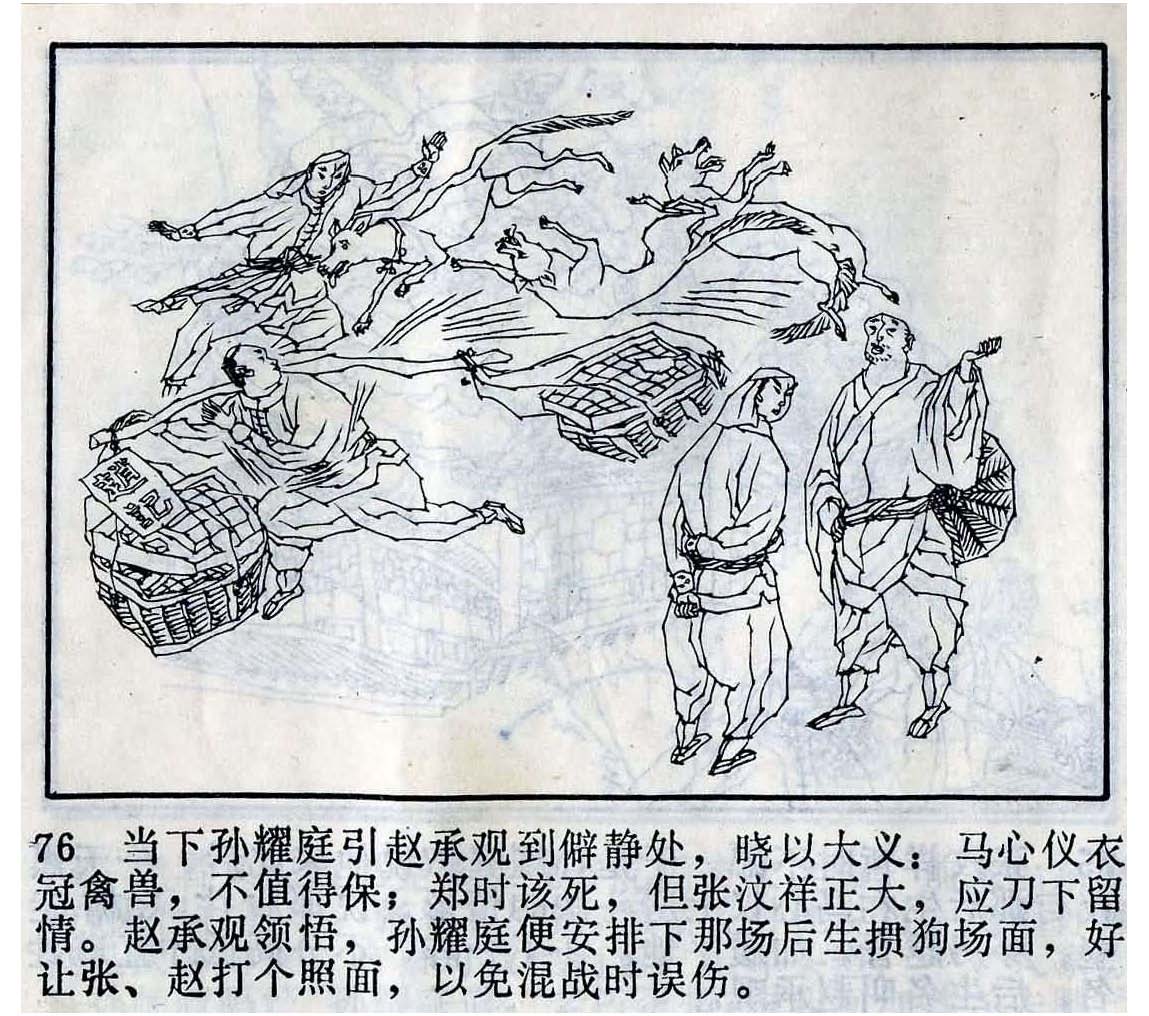 76 当下孙耀庭引赵承观到僻静处，晓以大义：马心仪衣
冠禽兽，不值得保；郑时该死，但张汶祥正大，应刀下留
情。赵承观领悟，孙耀庭便安排下那场后生掼狗场面，好
让张、赵打个照面，以免混战时误伤。